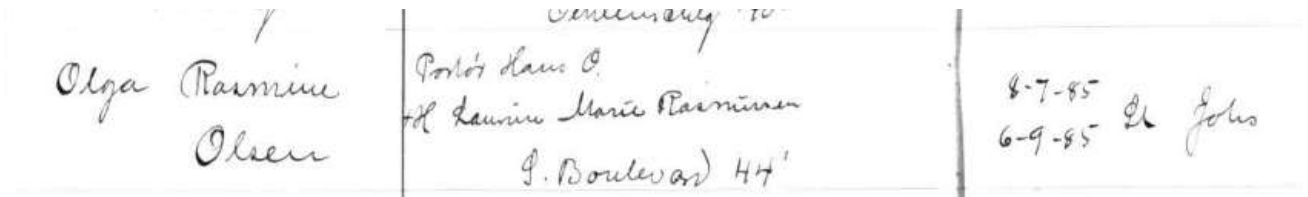 Olga Rasmine
Olsen
Portør Hans O.
+H Laurine Marie Rasmussen
S. Boulevard 44'
8-7-85
6-9-85 St Johs